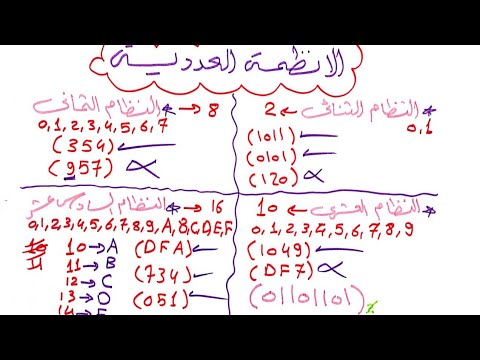 الانظمة العددية
* النظام الثنائي → 2
0,1
(1011) ←
(0101) ←
(120) ∝
* النظام الثماني → 8
0,1,2,3,4,5,6,7
(354) ←
(957) ∝
* النظام العشري → 10
0,1,2,3,4,5,6,7,8,9
(1049) ←
(DF7) ∝
(01101101)2
* النظام السادس عشر → 16
0,1,2,3,4,5,6,7,8,9,A,B,C,D,E,F
10→A
11→B
12→C
13→D
14→E
(DFA) ←
(734) ←
(051) ←